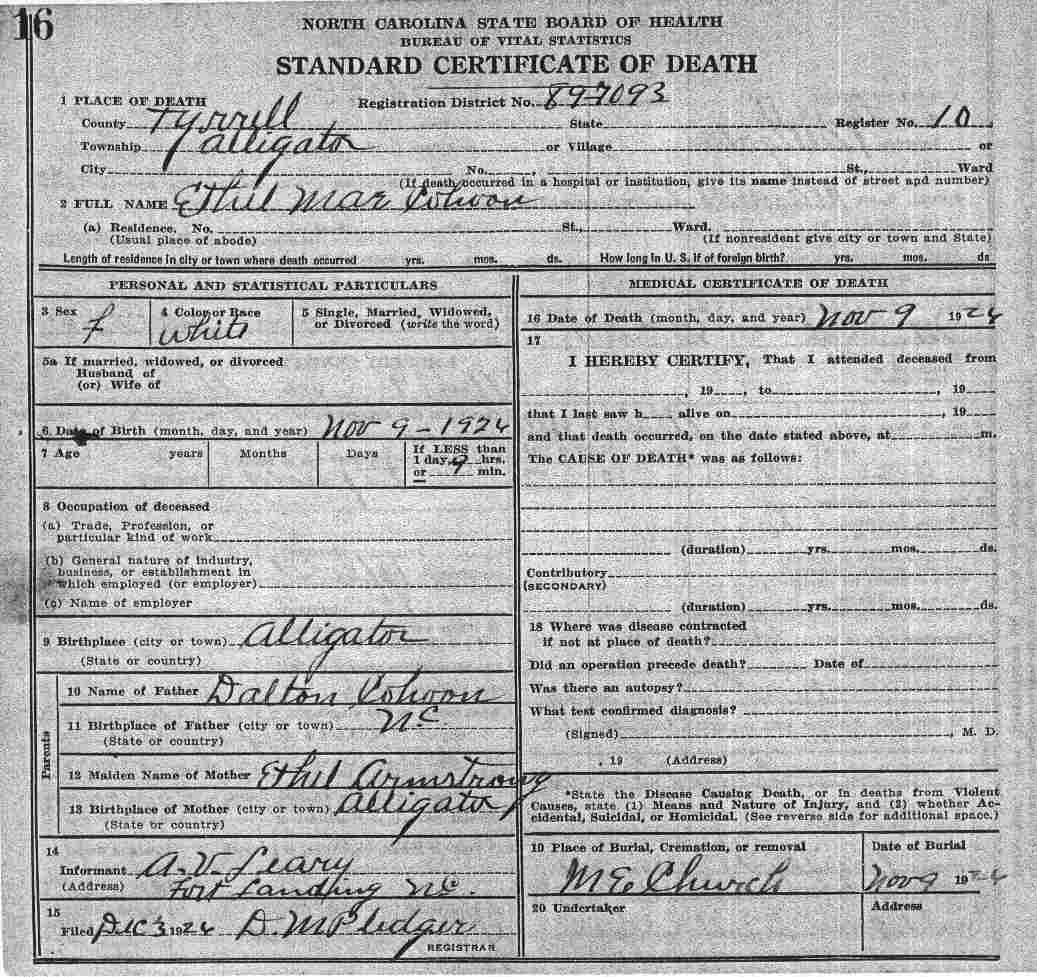 16
NORTH CAROLINA STATE BOARD OF HEALTH
BUREAU OF VITAL STATISTICS
STANDARD CERTIFICATE OF DEATH
1 PLACE OF DEATH Registration District No. 897093
County Tyrrell State Register No. 10
Township Alligator or Village or
City No. , St., Ward
(If death occurred in a hospital or institution, give its name instead of street and number)
2 FULL NAME Ethel Mae Cohoon
(a) Residence, No. St., Ward.
(Usual place of abode) (If nonresident give city or town and State)
Length of residence in city or town where death occurred yrs. mos. ds. How long in U. S. if of foreign birth? yrs. mos. ds.
PERSONAL AND STATISTICAL PARTICULARS
3 Sex f
4 Color or Race White
5 Single, Married, Widowed, or Divorced (write the word)
5a If married, widowed, or divorced
Husband of
(or) Wife of
6 Date of Birth (month, day, and year) Nov 9 - 1924
7 Age years Months Days
If LESS than
1 day, 9 hrs.
or min.
8 Occupation of deceased
(a) Trade, Profession, or
particular kind of work
(b) General nature of industry,
business, or establishment in
which employed (or employer)
(c) Name of employer
9 Birthplace (city or town) Alligator
(State or country)
Parents
10 Name of Father Dalton Cohoon
11 Birthplace of Father (city or town) NC.
(State or country)
12 Maiden Name of Mother Ethel Armstrong
13 Birthplace of Mother (city or town) Alligator
(State or country)
14
Informant A. V. Leary
(Address) Fort Landing NC.
15
Filed Dec 3 1924 D. M Pledger
REGISTRAR
MEDICAL CERTIFICATE OF DEATH
16 Date of Death (month, day, and year) Nov 9 1924
17
I HEREBY CERTIFY, That I attended deceased from
, 19 , to , 19
that I last saw h alive on , 19
and that death occurred, on the date stated above, at m.
The CAUSE OF DEATH* was as follows:
(duration) yrs. mos. ds.
Contributory
(SECONDARY)
(duration) yrs. mos. ds.
18 Where was disease contracted
if not at place of death?
Did an operation precede death? Date of
Was there an autopsy?
What test confirmed diagnosis?
(Signed) , M. D.
, 19 (Address)
*State the Disease Causing Death, or in deaths from Violent
Causes, state (1) Means and Nature of Injury, and (2) whether Ac-
cidental, Suicidal, or Homicidal. (See reverse side for additional space.)
19 Place of Burial, Cremation, or removal
M E Church
Date of Burial
Nov 9 1924
20 Undertaker
Address